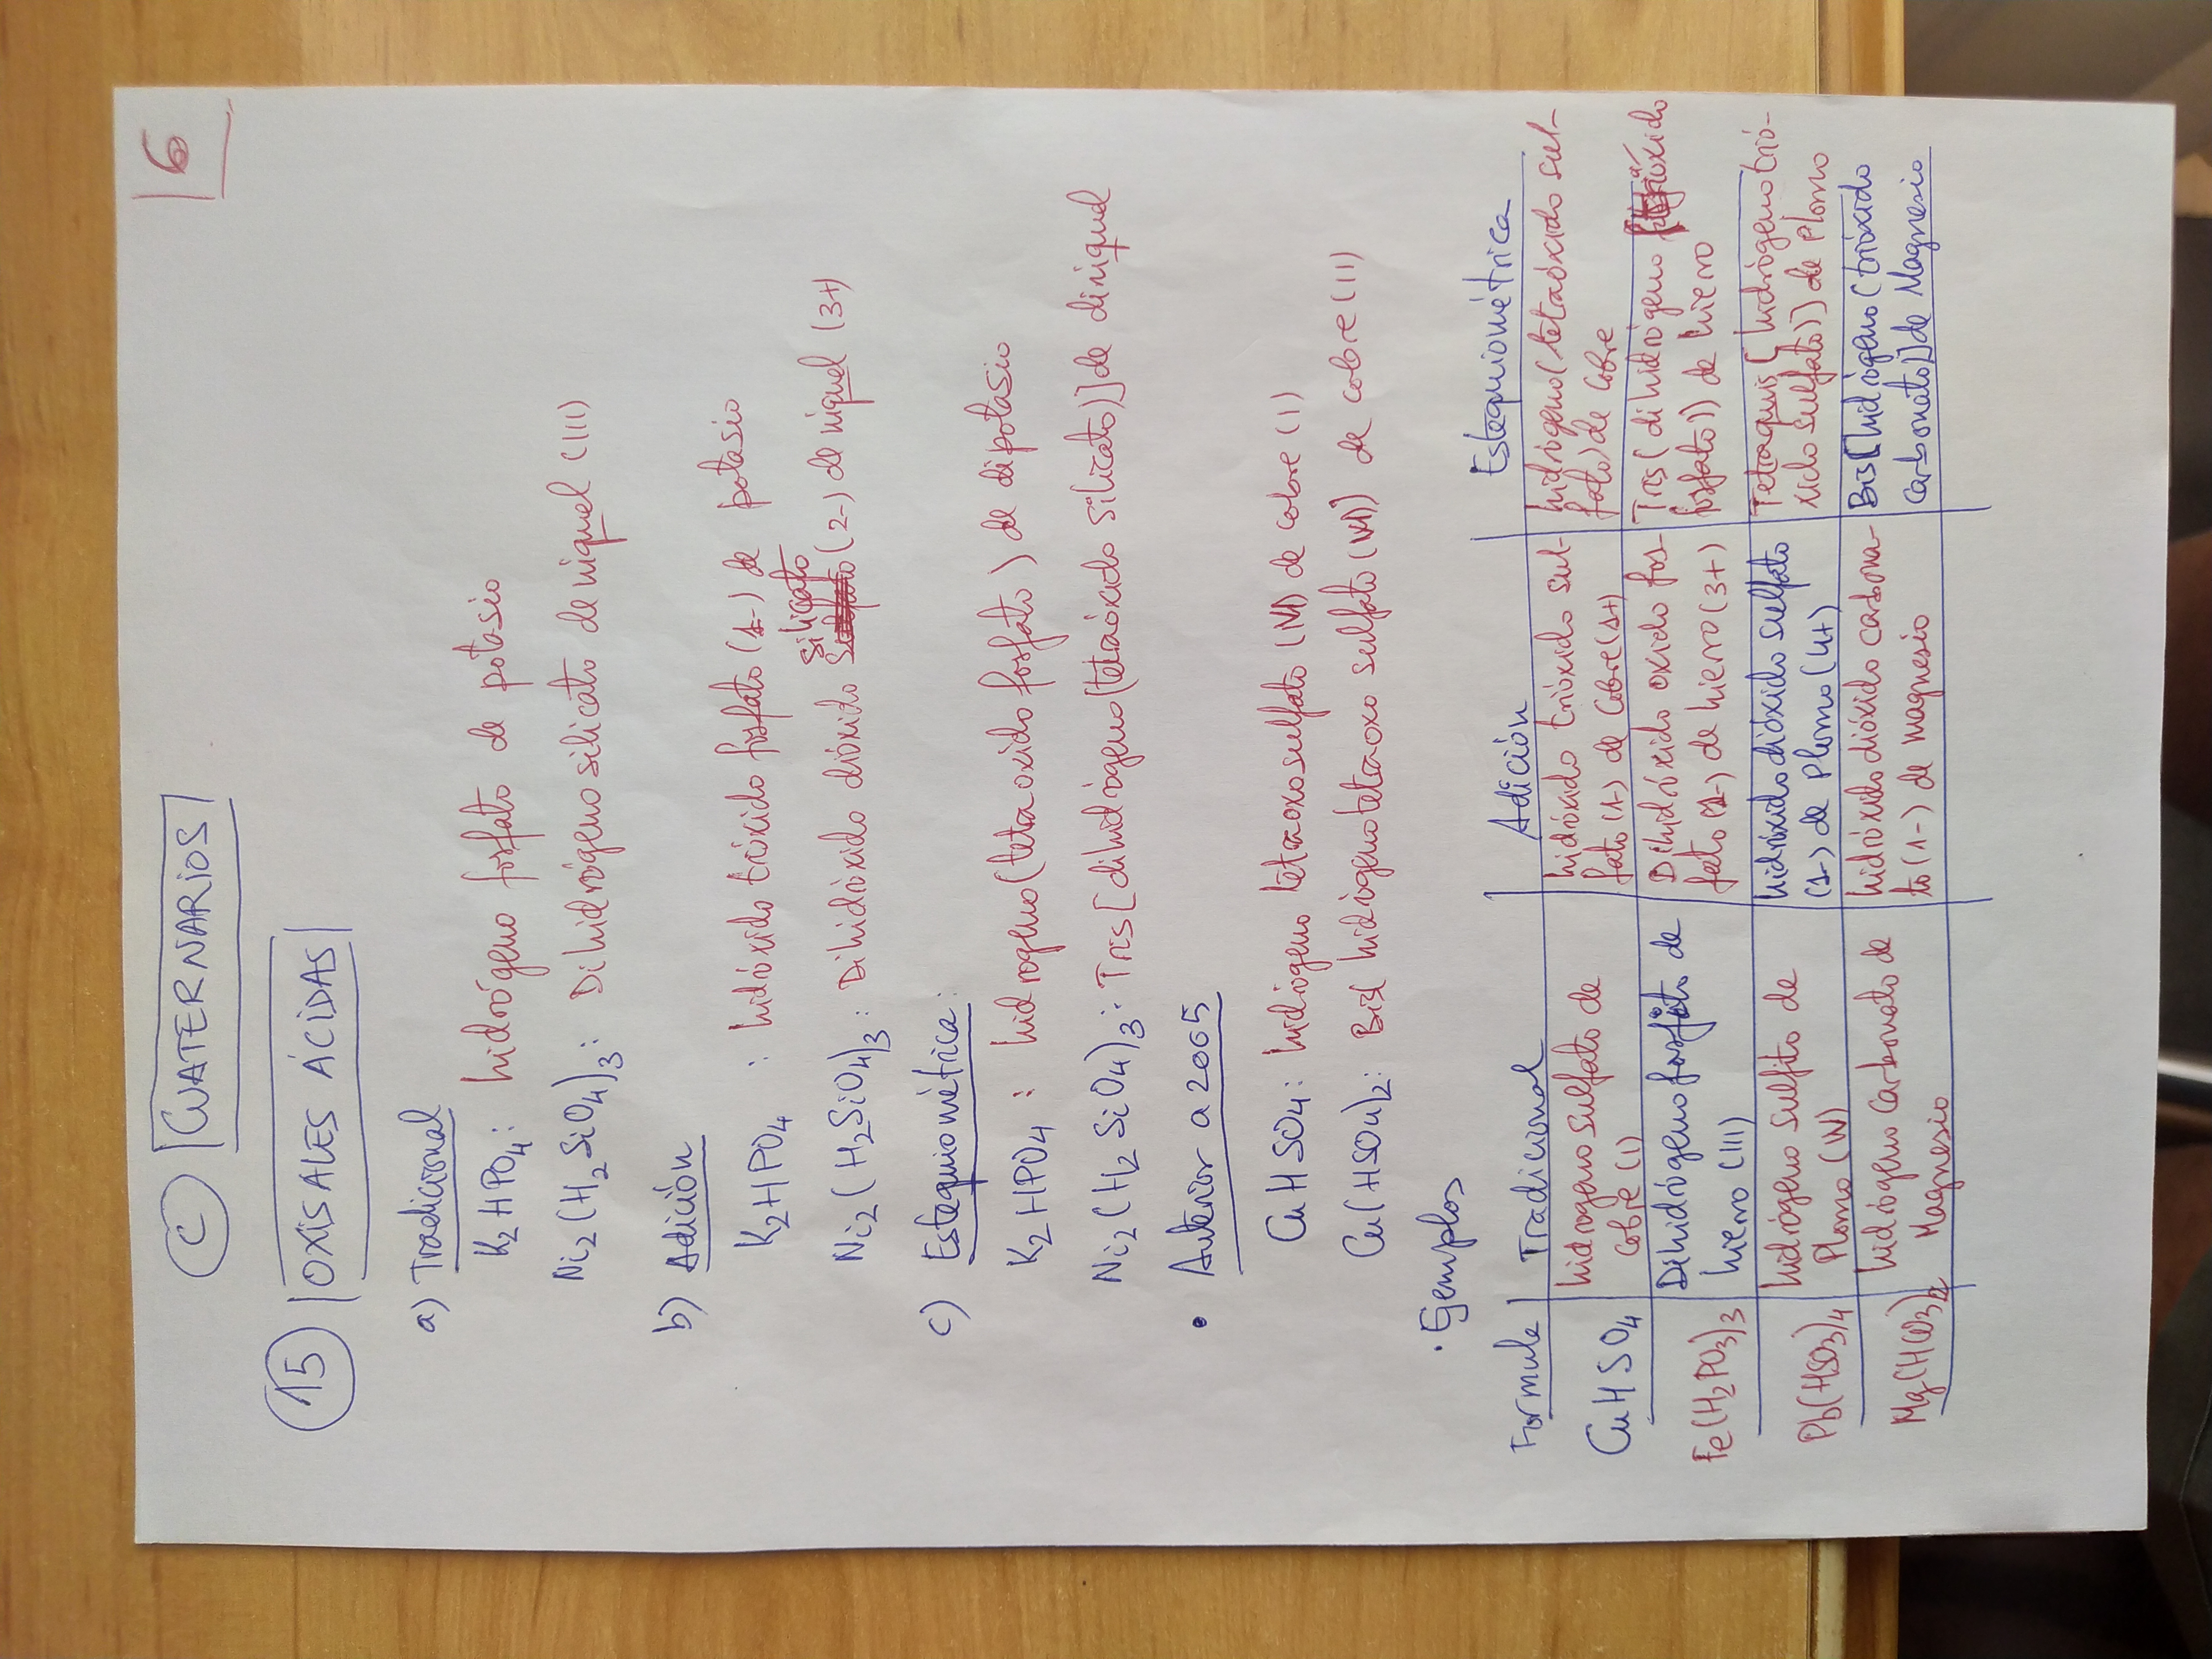 6
C CUATERNARIOS
15 OXISALES ÁCIDAS
a) Tradicional
K2HPO4: hidrógeno fosfato de potasio
Ni2(H2SiO4)3: Dihidrógeno silicato de niquel (III)
b) Adición
K2HPO4 : hidróxido trióxido fosfato (2-) de potasio
silicato
Ni2(H2SiO4)3: Dihidróxido dióxido (2-) de niquel (3+)
c) Estequiométrica:
K2HPO4 : hidrogeno (tetraoxido fosfato) de dipotasio
Ni2(H2SiO4)3: Tris[dihidrógeno(tetraóxido silicato)] de diniquel
• Anterior a 2005
CuHSO4: hidrógeno tetraoxosulfato (VI) de cobre (I)
Cu(HSO4)2: Bis(hidrógenotetraoxo sulfato (VI)) de cobre (II)
• Ejemplos
Formula Tradicional Adición Estequiométrica
CuHSO4 hidrogeno sulfato de cobre (I) hidróxido trióxido sulfato (1-) de cobre (1+) hidrógeno (tetraóxido sulfato) de cobre
Fe(H2PO3)3 Dihidrógeno fosfito de hierro (III) Dihidróxido oxido fosfato (1-) de hierro (3+) Tris (dihidrógeno óxido fosfato)) de hierro
Pb(HSO3)4 hidrógeno sulfito de Plomo (IV) hidróxido dióxido sulfato (1-) de plomo (4+) Tetraquis[hidrógeno trióxido sulfato)] de Plomo
Mg(HCO3)2 hidrógeno carbonato de Magnesio hidróxido dióxido carbonato (1-) de magnesio Bis[hidrógeno (trióxido carbonato)] de Magnesio